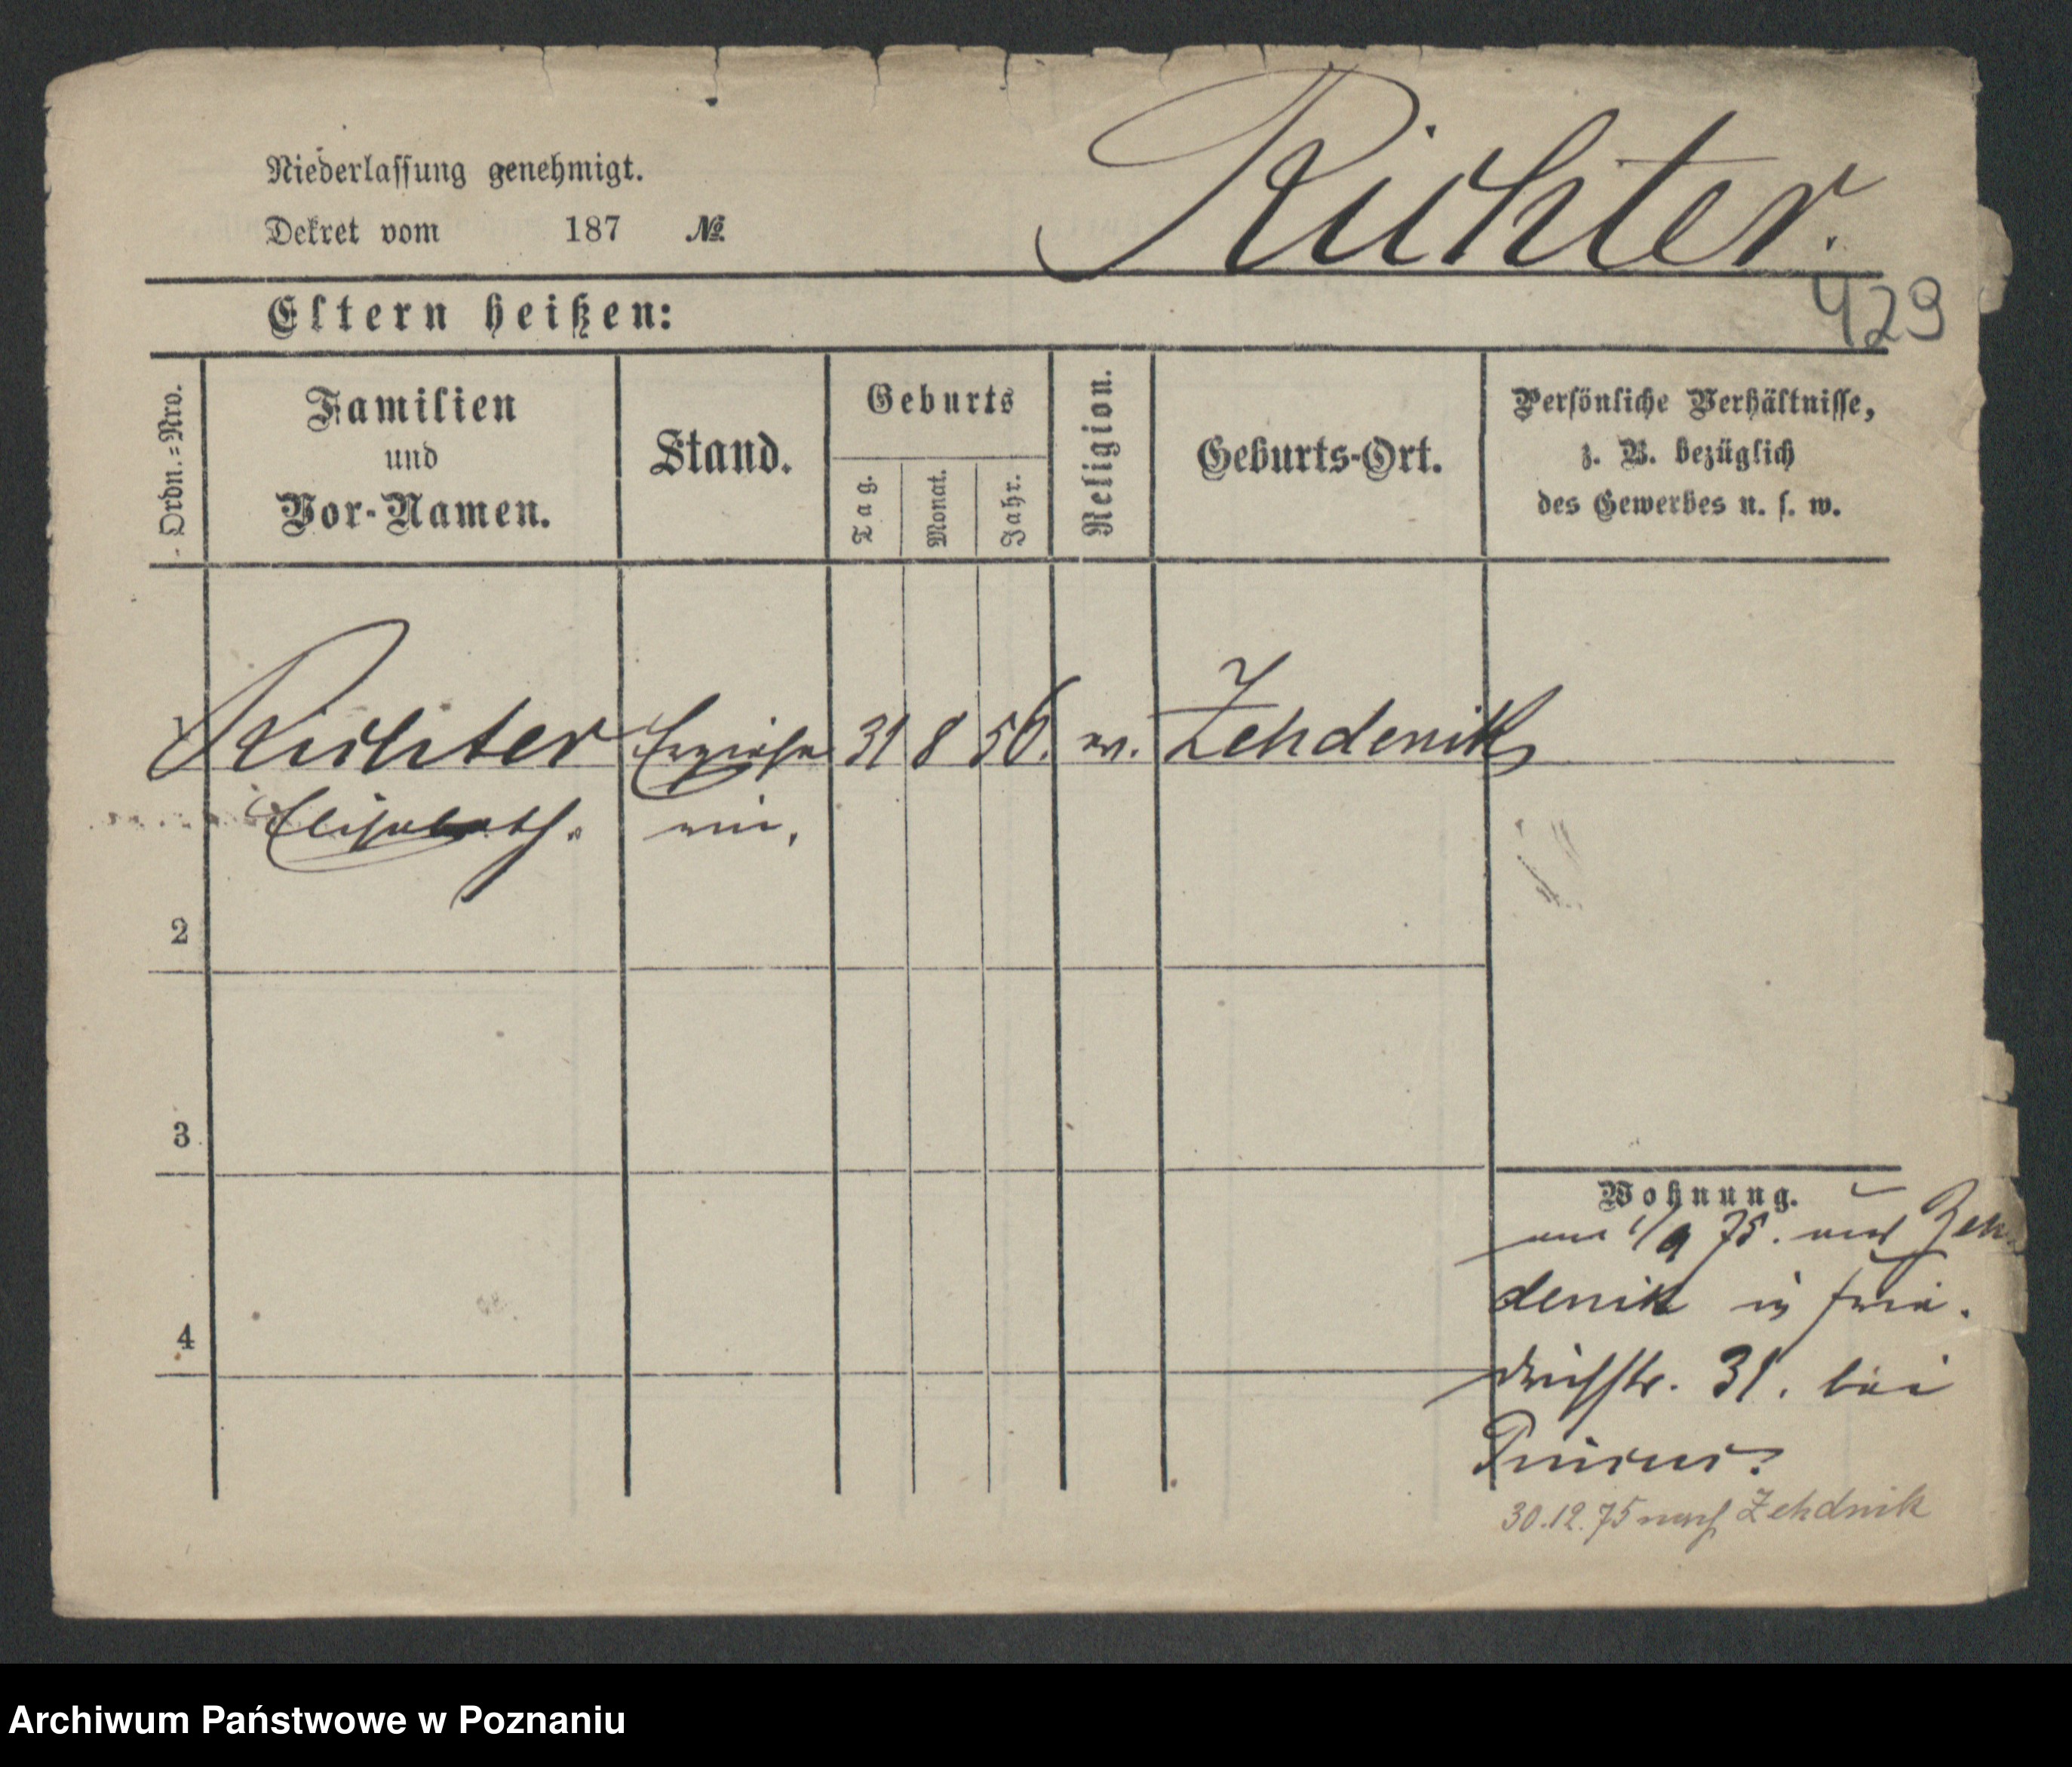 Richter.
Niederlassung genehmigt.
Dekret vom 187 №
429
Eltern heißen:
Ordn.=Nro.
Familien
und
Vor-Namen.
Stand.
Geburts
Tag.
Monat.
Jahr.
Religion.
Geburts-Ort.
Persönliche Verhältnisse,
z. B. bezüglich
des Gewerbes u. s. w.
Richter Erziehe 31 8 56. ev. Zehdenik
Elisabeth. rin.
2
3
4
Wohnung.
am 1/9 75. aus Zeh
denik in Frie
drichstr. 31. bei
30.12.75 nach Zehdnik
Archiwum Państwowe w Poznaniu